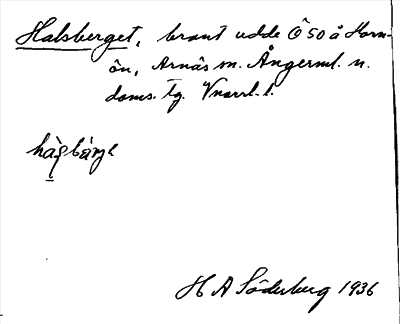 Halsberget, brant udde Ö SO å Horn-
ön, Arnäs sn. Ångerml. n.
doms. tg. Vnorrl. l.
H A Söderberg 1936